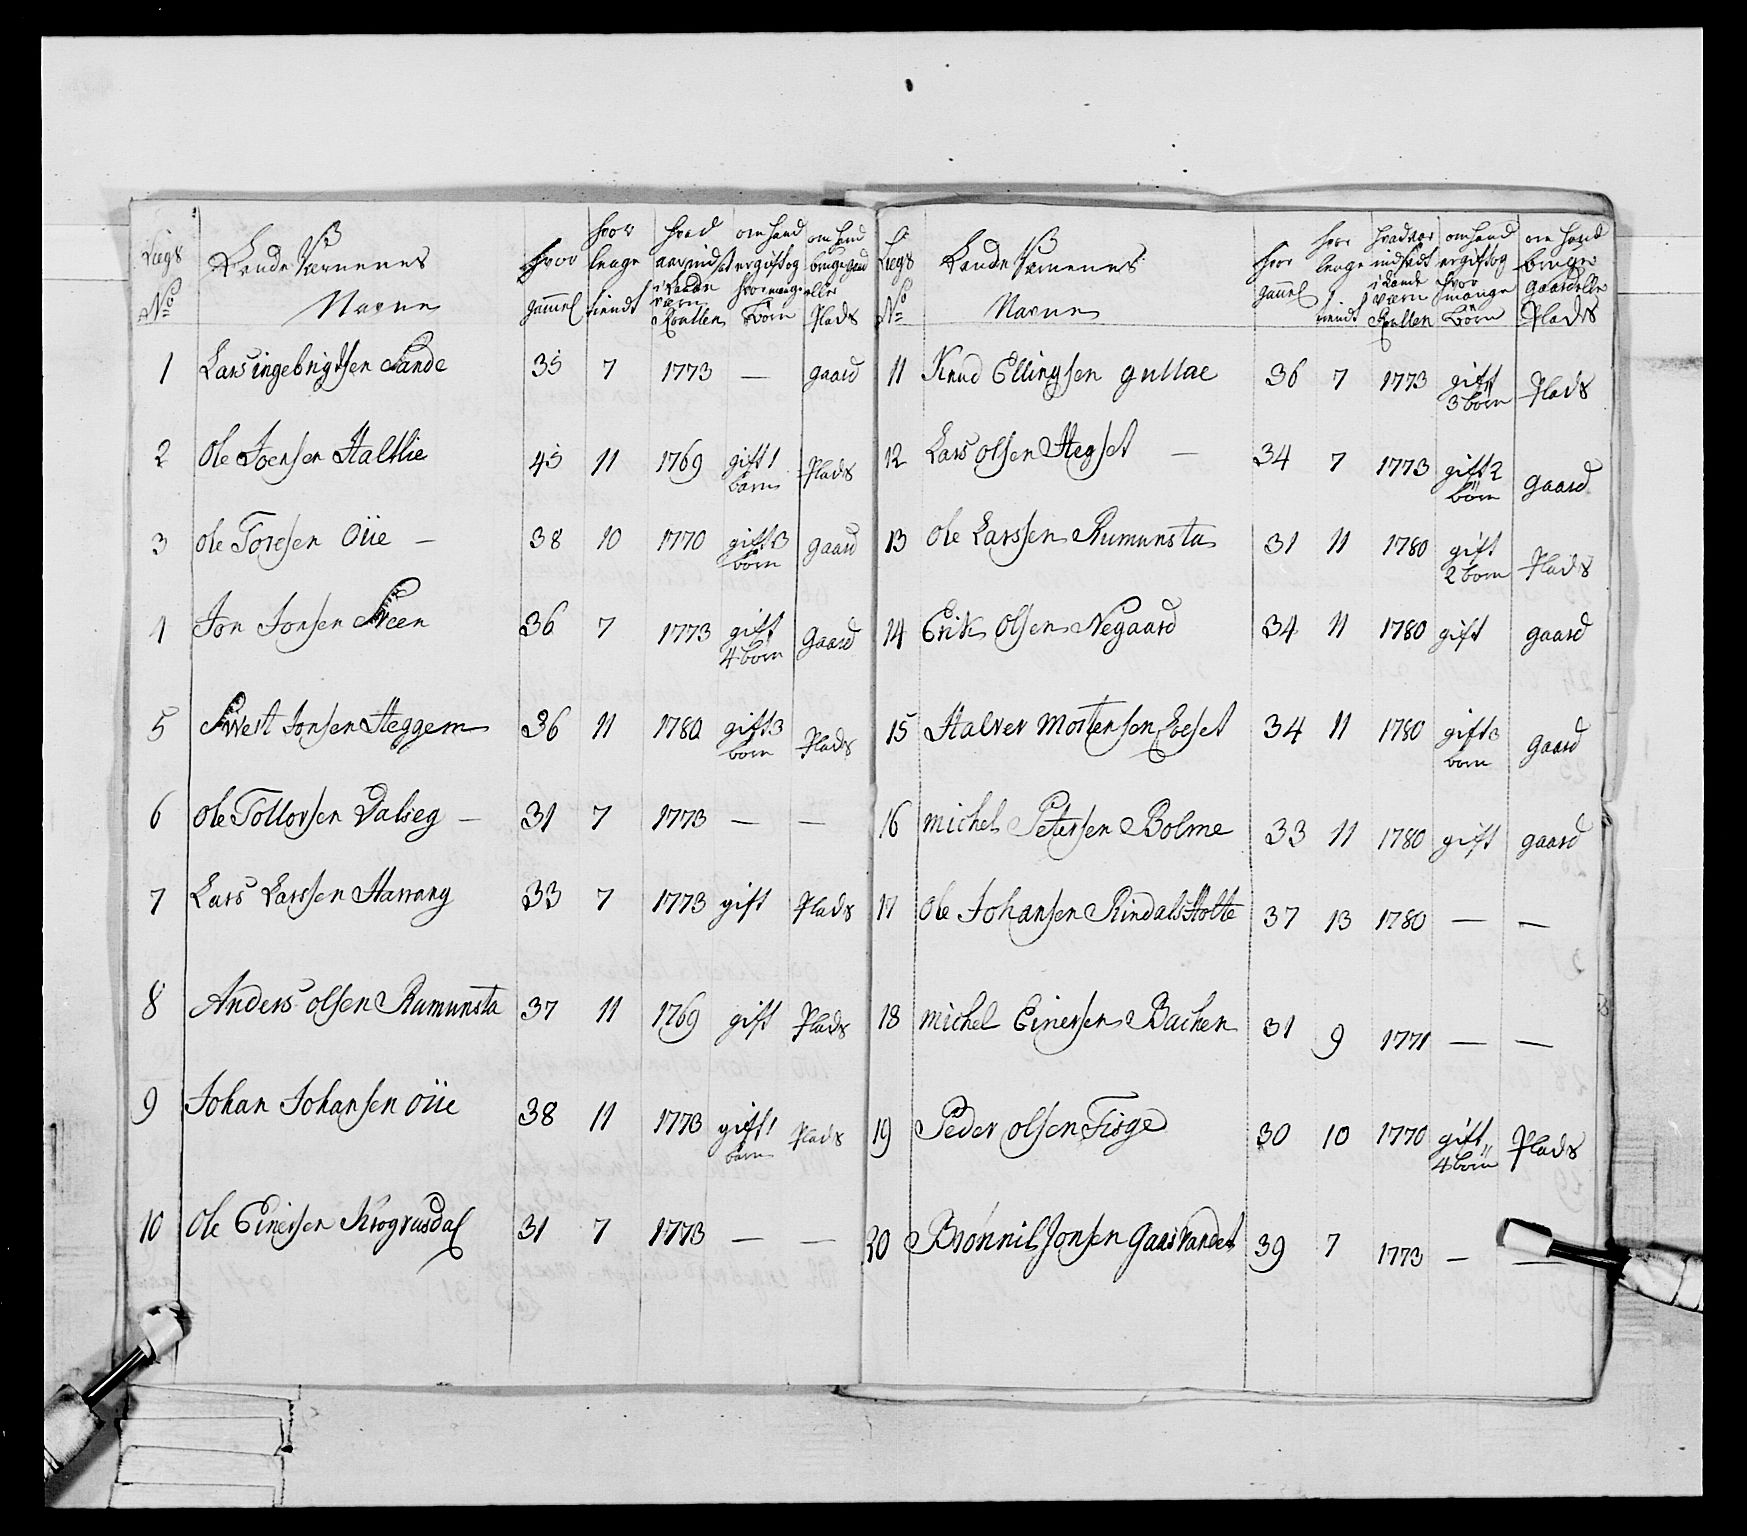 Lægs
No
Lande Værnenes
Navne
hvor
gammel
hvor
lenge
tiendt
hvad
aar indsat
i Lande
værn
Roullen
om hand
er gift og
hvor mange
Börn
om hand
bruger gaard
eller
Plads
1 Lars ingebrigtsen Sande 35 7 1773 — gaard
2 Ole Joensen Haltlie 45 11 1769 gift 1 Plads
barn
3 ole Toresen Öiie — 38 10 1770 gift 3 gaard
börn
4 Jon Jonsen Sveen 36 7 1773 gift gaard
4 börn
5 Siwert Jonsen Heggem 36 11 1780 gift 3 Plads
born
6 Ole Tollovsen Dalseg — 31 7 1773 — —
7 Lars Larssen Harrang 33 7 1773 gift Plads
8 Anders olsen Rumunsta 37 11 1769 gift Plads
9 Johan Johansen Öiie 38 11 1773 gift 1 Plads
barn
10 Ole Einersen Krogvasdal 31 7 1773 — —
Lægs
No
Lande Værnenes
Navne
hvor
gammel
hvor
lenge
tiendt
hvad aar
indsadt
i Lande
værn
Roullen
om hand
er gift og
hvor
mange
Börn
om hand
bruger
gaard eller
Plads
11 Knud Ellingsen gullae 36 7 1773 gift Plads
3 börn
12 Lars olsen Hegset — 34 7 1773 gift 2 gaard
börn
13 Ole Larssen Rumunsta 31 11 1780 gift Plads
2 born
14 Erik Olsen Negaard 34 11 1780 gift gaard
15 Halver Mortensen Eeset 34 11 1780 gift 3 gaard
born
16 michel Petersen Bolme 33 11 1780 gift gaard
17 Ole Johansen Rindals Holte 37 13 1780 — —
18 michel Einersen Bachen 31 9 1771 — —
19 Peder olsen Fiöge 30 10 1770 gift Plads
4 börn
20 Brønnil Jonsen Gaasvandet 39 7 1773 — —